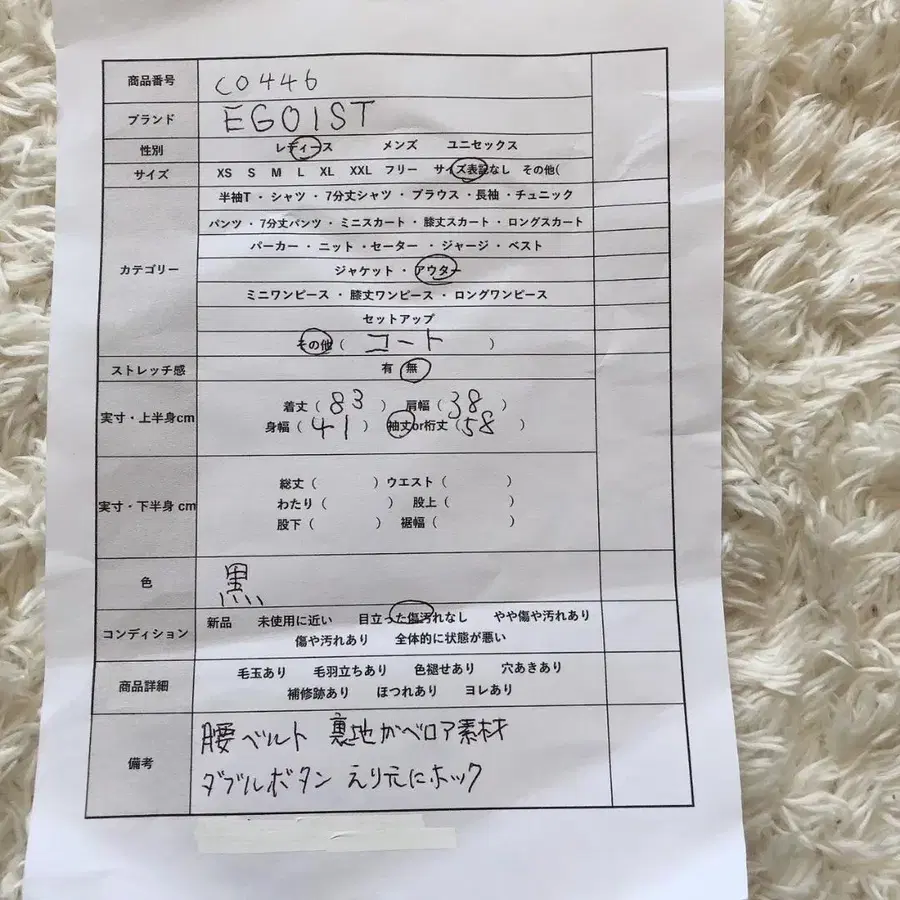 商品番号 C0446
ブランド EGOIST
性別 レディース メンズ ユニセックス
サイズ XS S M L XL XXL フリー サイズ表記なし その他(
半袖T・シャツ・7分丈シャツ・ブラウス・長袖・チュニック
パンツ・7分丈パンツ・ミニスカート・膝丈スカート・ロングスカート
パーカー・ニット・セーター・ジャージ・ベスト
カテゴリー ジャケット・アウター
ミニワンピース・膝丈ワンピース・ロングワンピース
セットアップ
その他( コート )
ストレッチ感 有 無
着丈( 83 ) 肩幅( 38 )
実寸・上半身cm
身幅( 41 ) 袖丈or裄丈(58 )
総丈( )ウエスト( )
実寸・下半身cm わたり( ) 股上( )
股下( ) 裾幅( )
色 黒
新品 未使用に近い 目立った傷汚れなし やや傷や汚れあり
コンディション
傷や汚れあり 全体的に状態が悪い
毛玉あり 毛羽立ちあり 色褪せあり 穴あきあり
商品詳細
補修跡あり ほつれあり ヨレあり
腰ベルト 裏地がベロア素材
備考
ダブルボタン えり元にホック